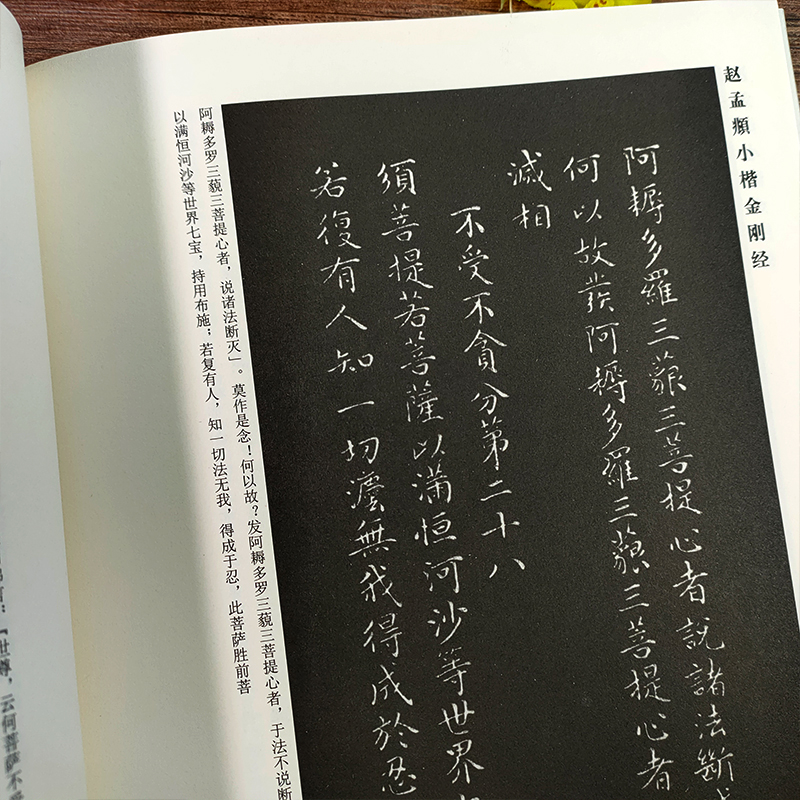 赵孟頫小楷金刚经
阿耨多羅三藐三菩提心者說諸法斷
何以故發阿耨多羅三藐三菩提心者
滅相
不受不貪分第二十八
須菩提若菩薩以滿恒河沙等世界
若復有人知一切法無我得成於忍
阿耨多罗三藐三菩提心者，说诸法断灭」。莫作是念！何以故？发阿耨多罗三藐三菩提心者，于法不说断
以满恒河沙等世界七宝，持用布施；若复有人，知一切法无我，得成于忍，此菩萨胜前菩
言：「世尊，云何菩萨不受